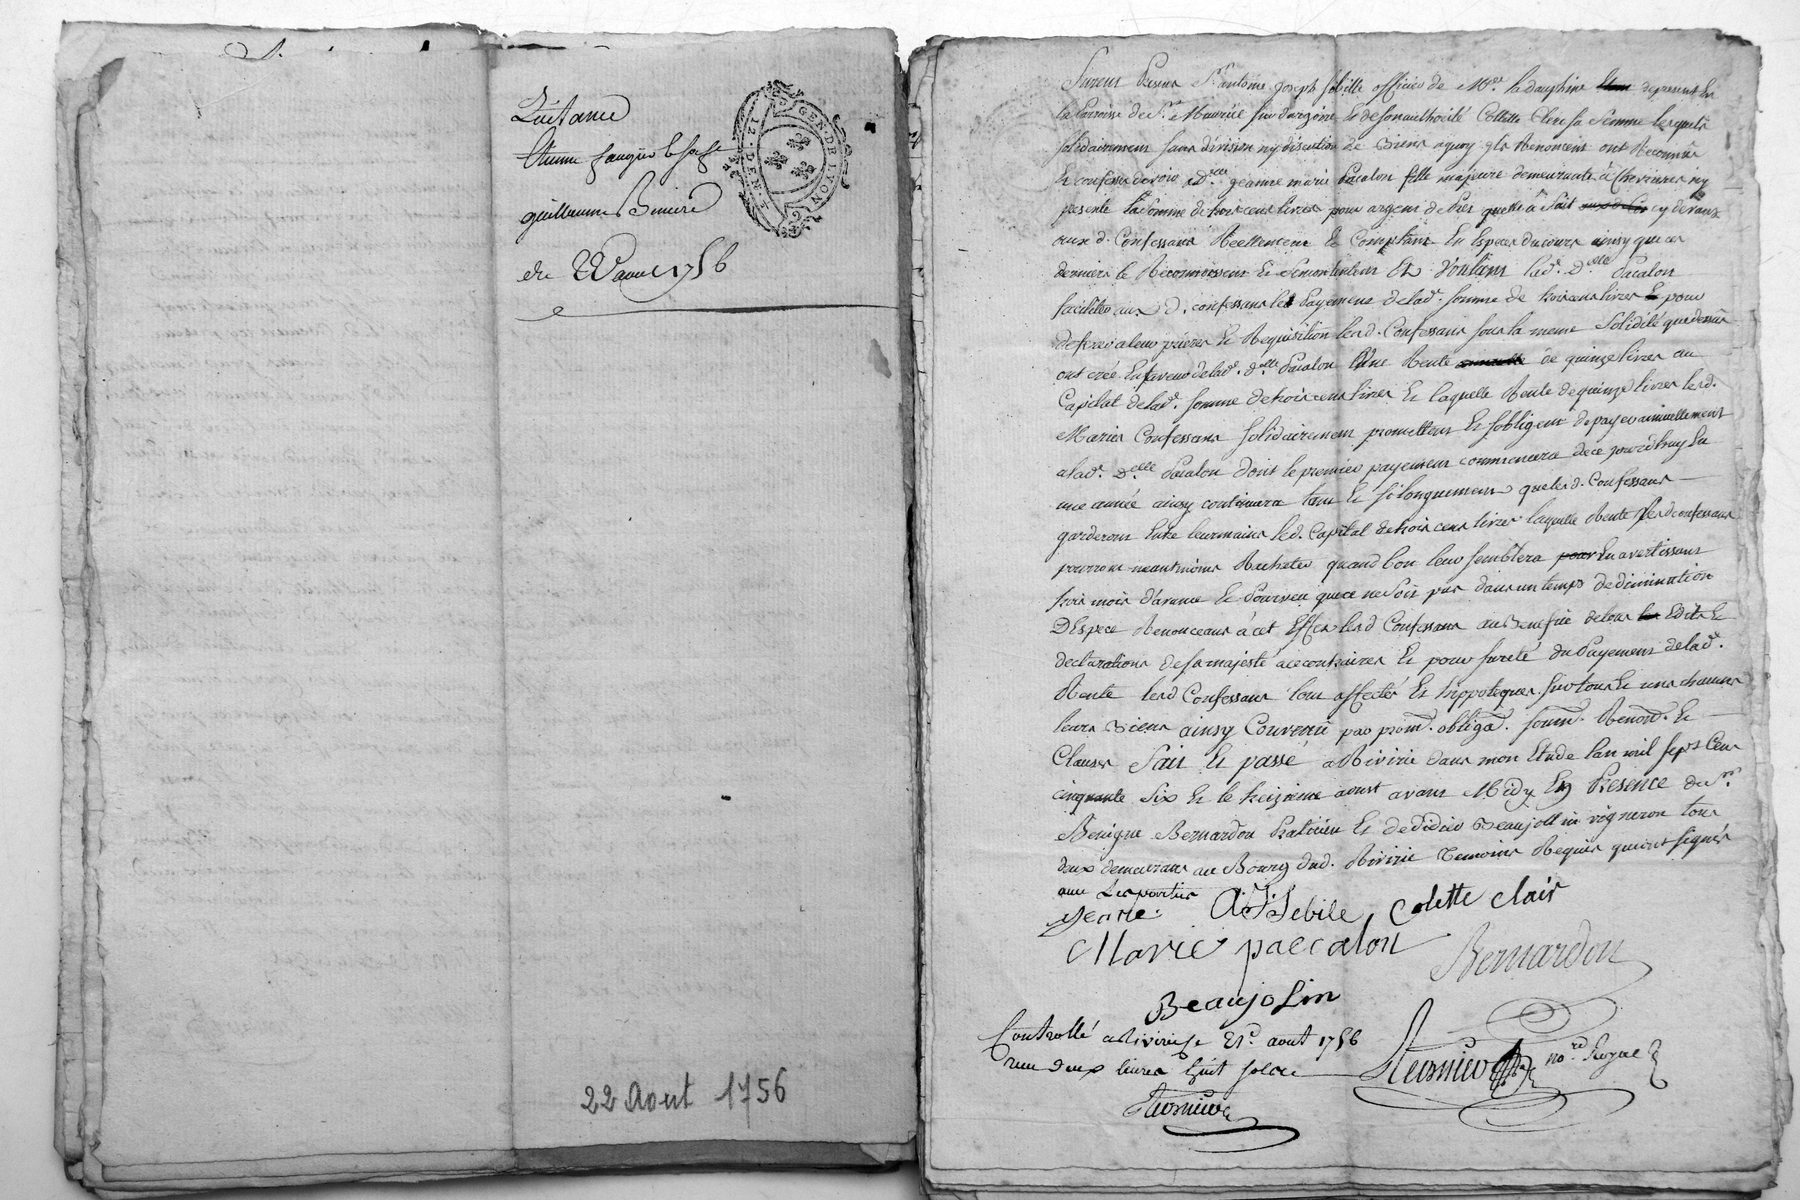 Quitance
Etienne
guillaume
du 22 aout 1756
GEN. DE LYON
12. DEN.
22 Aout 1756
Furent presens Sr. antoine joseph Sebille officier de Made. la dauphine demeurant en
la Paroisse de St. Maurice sur dargoire et de son authorité Collette Clair sa femme lesquels
solidairement sans division ny discution de Biens a quoy ils Renoncent ont Reconnus
et confessé devoir a Delle jeanne marie Pacalon fille majeure demeurante à icy
presente la somme de trois cens livres pour argent de Prest quelle a fait cy devant
aux d. Confessans Reellement et Comptant En Especes du cours ainsy que ces
derniers le Reconnoissent et s'en contentent Et Voulant lade. Delle Pacalon
faciliter aux d. confessans le Payement de lade. somme de trois cens livres pour
deferer a leur prieres et Requisition lesd. Confessans sous la meme Solidité que dessus
ont créé En faveur de lade. delle Pacalon Une Rente de quinze livres au
Capital de lade. somme de trois cens livres Et laquelle Rente de quinze livres lesd.
Mariés Confessans solidairement promettent et s'obligent de payer annuellement
a lade. Delle Pacalon dont le premier payement commencera de ce jourdhuy En
une année ainsy continuera tant et si longuement que lesd. Confessans
garderont Entre leurs mains led. Capital de trois cens livres laquelle Rente lesd confessans
pourront neantmoins Racheter quand bon leur semblera En avertissant
trois mois d'avance et Pourveu que ce ne soit pas dans un temps de diminution
D'Espece Renonceans à cet Effet lesd Confessans au Benefice de tous Edits et
declarations de sa majesté a ce contraires Et pour sureté du Payement de lade.
Rente lesd Confessans ont affectés Et hippotequés sur tous Et uns chacuns
leurs Biens ainsy Convenu par prom. obliga. soum. Renon. et
Clauses Fait et passé a Riverie dans mon Etude lan mil sept Cens
cinquante Six Et le treizieme aoust avant Midy En Presence de Sr.
Benigne Bernardon Praticien Et de Didier Beaujollin vigneron tous
deux demeurans au Bourg dud. Riverie Temoins Requis qui ont signés
avec Les parties
A. J. Sebile, Colette clair
Marie paccalon
Bernardon
Beaujolin
Controllé a Riverie le 21e. aout 1756
reçu deux livres huit sols
no.re Royal